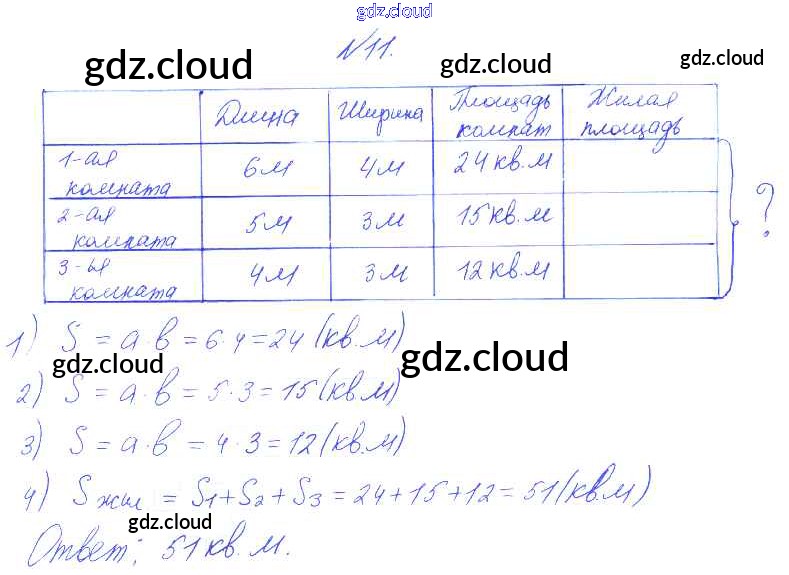 gdz.cloud
№11.
gdz.cloud gdz.cloud gdz.cloud
Длина Ширина Площадь комнат Жилая площадь
1-ая комната 6м 4м 24 кв.м
2-ая комната 5м 3м 15 кв.м
3-ья комната 4м 3м 12 кв.м
?
1) S = a·b = 6·4 = 24 (кв.м)
gdz.cloud gdz.cloud
2) S = a·b = 5·3 = 15 (кв.м)
3) S = a·b = 4·3 = 12 (кв.м)
4) Sжил = S1 + S2 + S3 = 24 + 15 + 12 = 51 (кв.м)
gdz.cloud
Ответ: 51 кв.м.